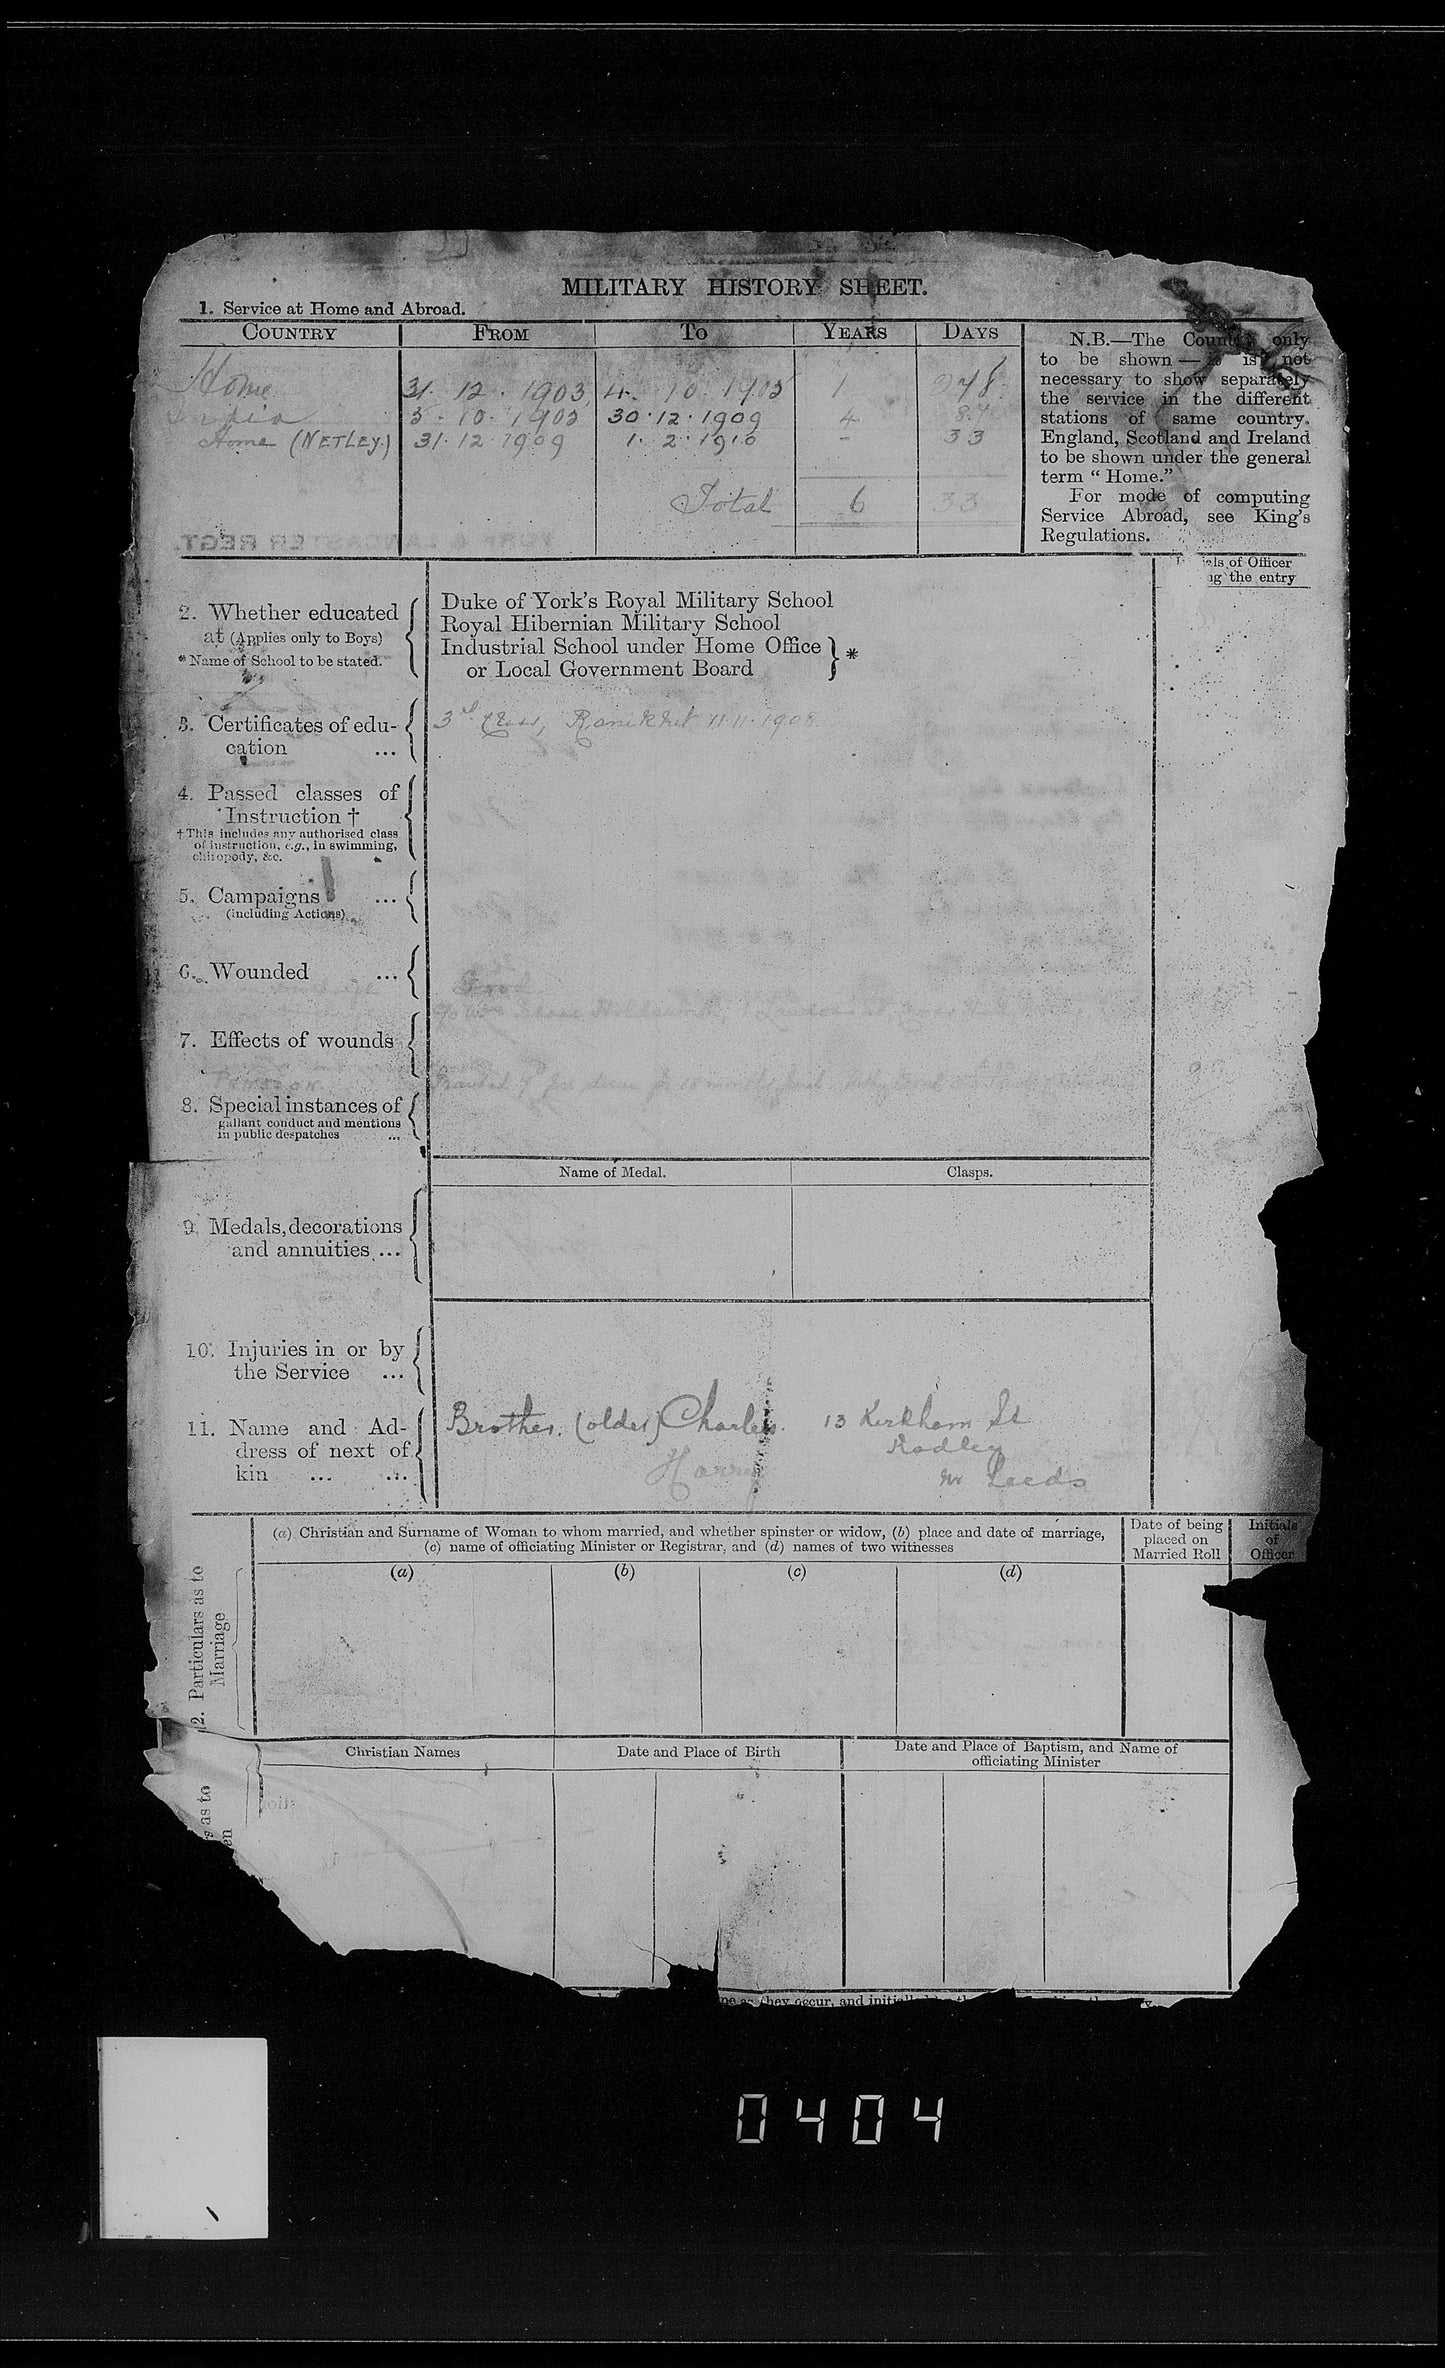 MILITARY HISTORY SHEET.
1. Service at Home and Abroad.
COUNTRY FROM TO YEARS DAYS
Home 31. 12. 1903 4. 10. 1905 1 278
India 5. 10. 1905 30. 12. 1909 4 87
Home (NETLEY) 31. 12. 1909 1. 2. 1910 - 33
Total 6 33
N.B.—The Country only
to be shown — it is not
necessary to show separately
the service in the different
stations of same country.
England, Scotland and Ireland
to be shown under the general
term “ Home.”
For mode of computing
Service Abroad, see King's
Regulations.
YORK & LANCASTER REGT.
of Officer
the entry
2. Whether educated
at (Applies only to Boys)
* Name of School to be stated.
Duke of York's Royal Military School
Royal Hibernian Military School
Industrial School under Home Office
or Local Government Board } *
3. Certificates of edu-
cation ...
3rd Class, Ranikhet 11.11.1908
4. Passed classes of
Instruction †
† This includes any authorised class
of instruction, e.g., in swimming,
chiropody, &c.
5. Campaigns ...
(including Actions)
6. Wounded ...
7. Effects of wounds
8. Special instances of
gallant conduct and mentions
in public despatches ...
Name of Medal. Clasps.
9. Medals, decorations
and annuities ...
10. Injuries in or by
the Service ...
11. Name and Ad-
dress of next of
kin ... ...
Brother. (older) Charles. 13 Kirkham St
Harry Rodley
nr Leeds
(a) Christian and Surname of Woman to whom married, and whether spinster or widow, (b) place and date of marriage,
(c) name of officiating Minister or Registrar, and (d) names of two witnesses
Date of being
placed on
Married Roll
Initials
of
Officer
(a) (b) (c) (d)
2. Particulars as to
Marriage
Christian Names
Date and Place of Birth
Date and Place of Baptism, and Name of
officiating Minister
as to
they occur, and
0404